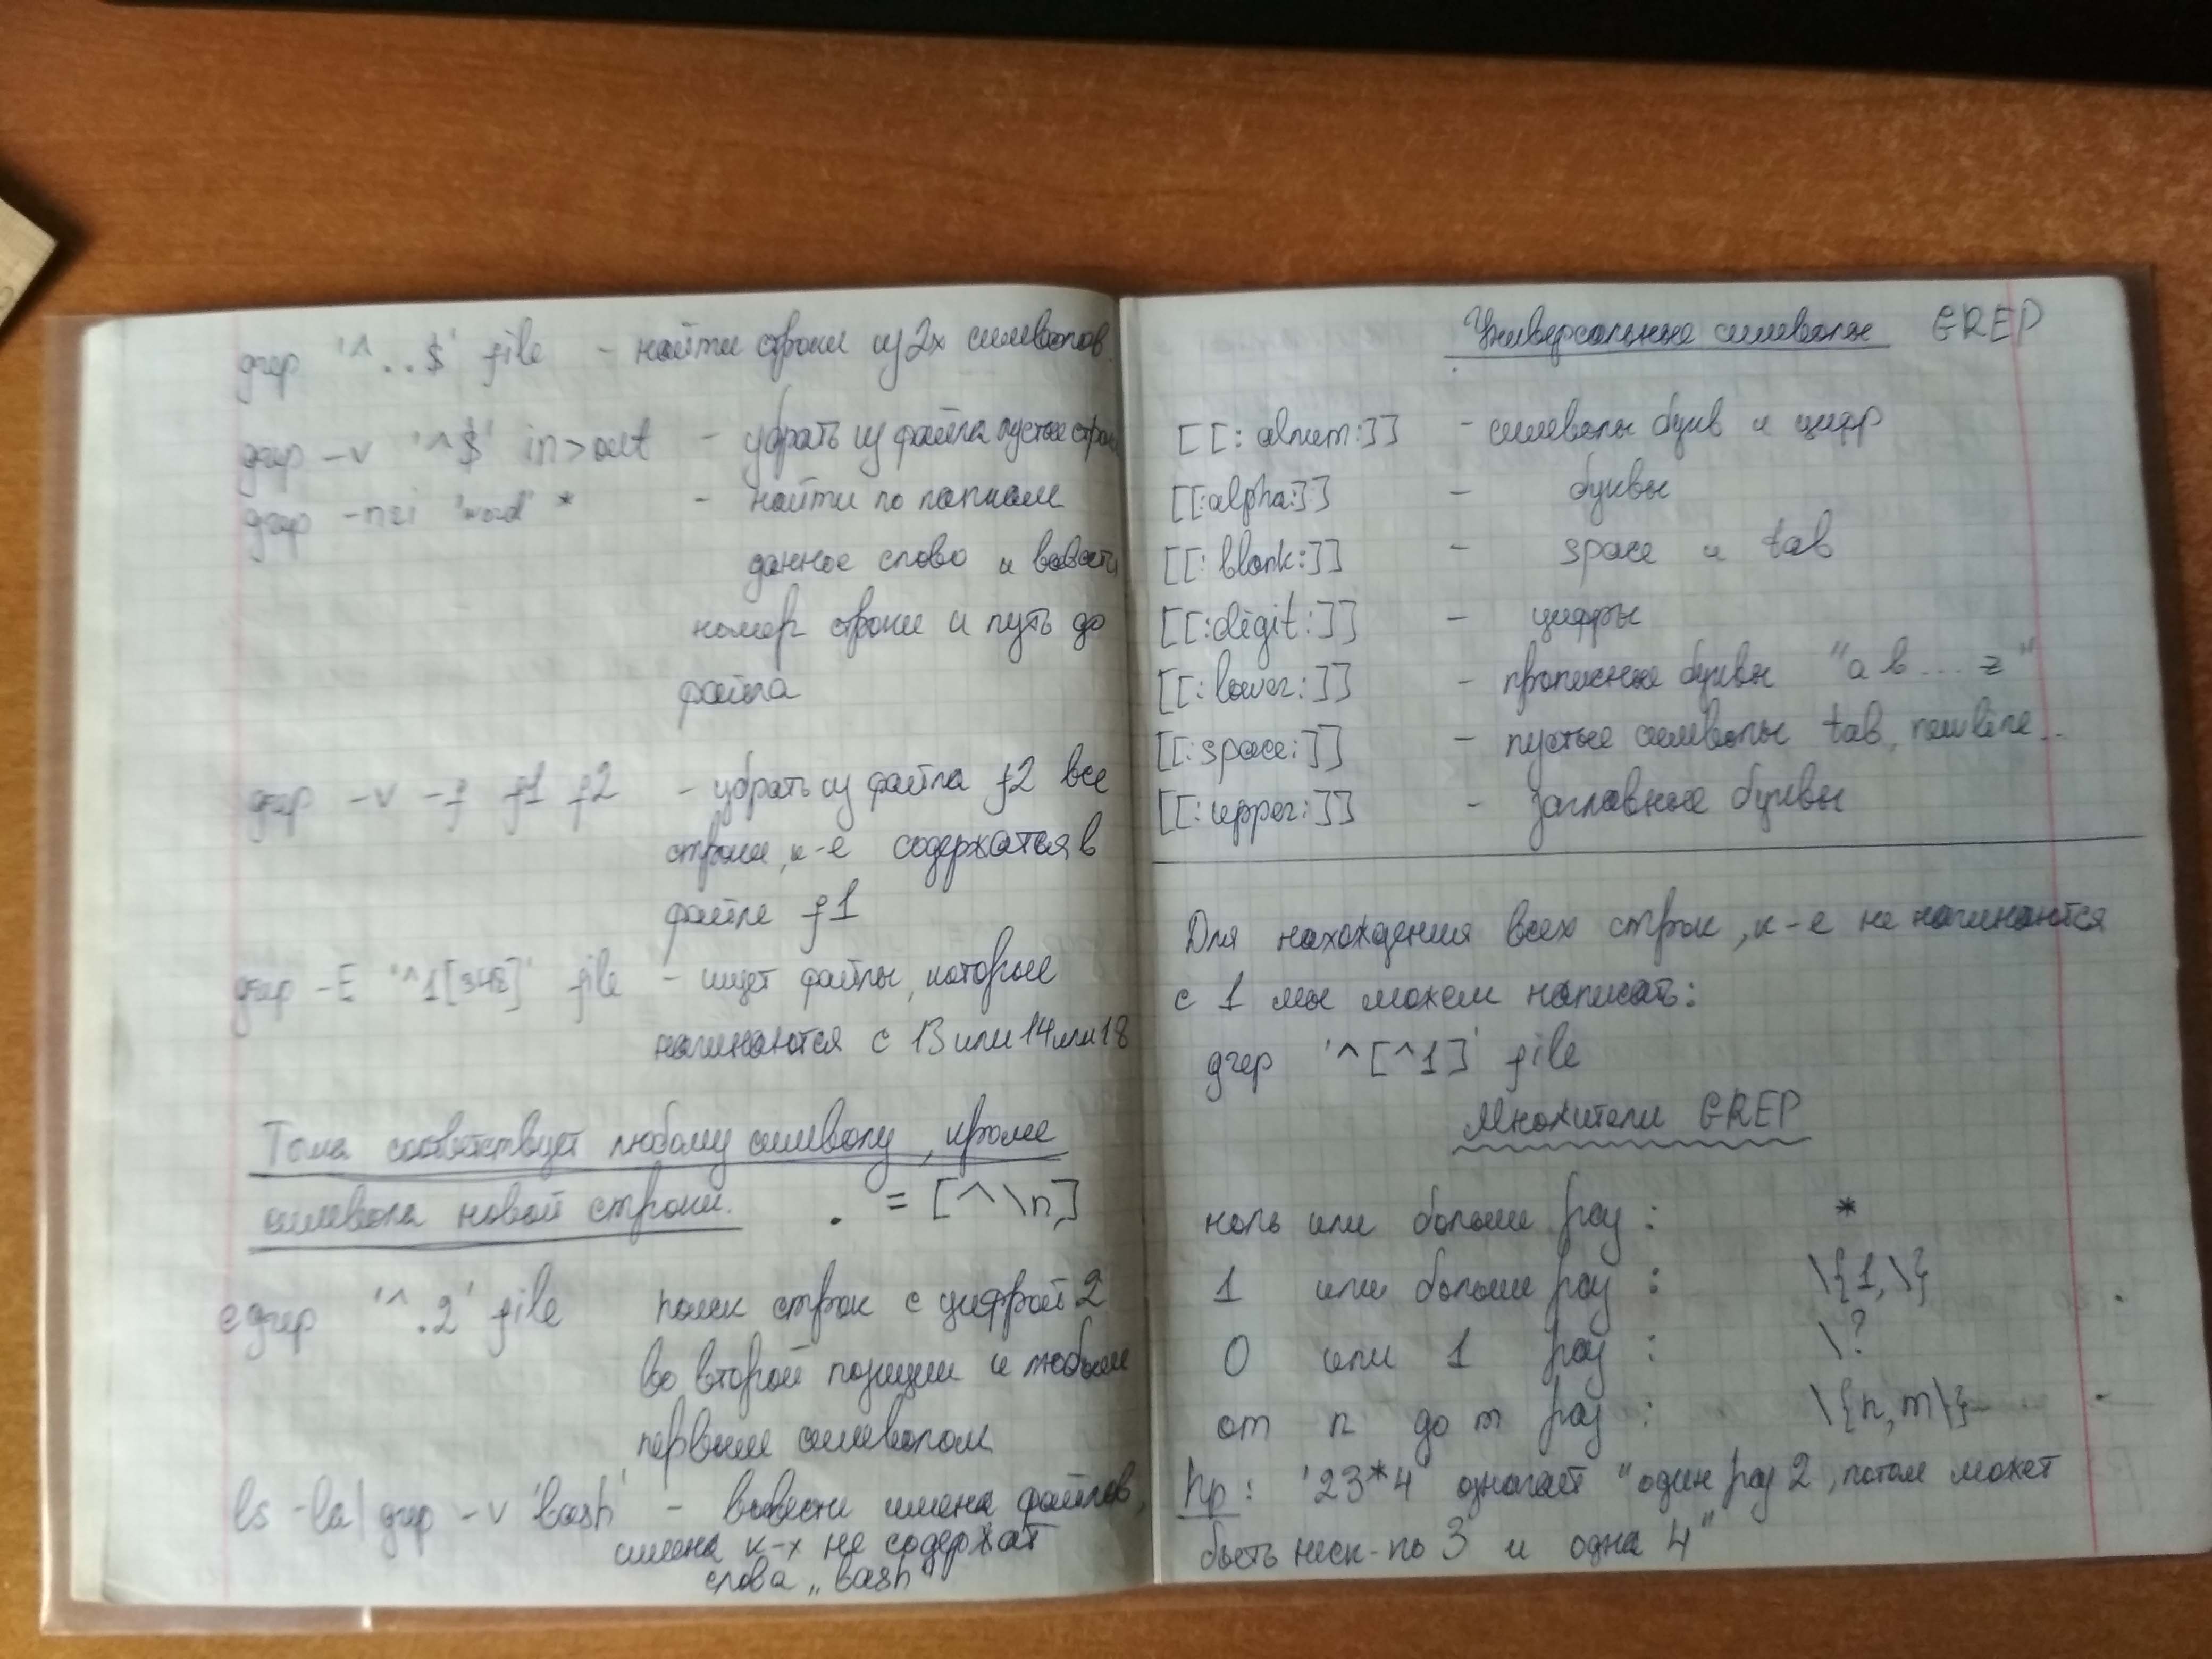 grep '^..$' file - найти строки из 2х символов
grep -v '^$' in>out - убрать из файла пустые строки
grep -nri 'word' * - найти по папкам
данное слово и вывести
номер строки и путь до
файла
grep -v -f f1 f2 - убрать из файла f2 все
строки, к-е содержатся в
файле f1
grep -E '^1[348]' file - ищет файлы, которые
начинаются с 13 или 14 или 18
Точка соответствует любому символу, кроме
символа новой строки. . = [^\n]
egrep '^.2' file поиск строк с цифрой 2
во второй позиции и любым
первым символом
ls -la | grep -v 'bash' - вывести имена файлов,
имена к-х не содержат
слова „bash"
Универсальные символы GREP
[[:alnum:]] - символы букв и цифр
[[:alpha:]] - буквы
[[:blank:]] - space и tab
[[:digit:]] - цифры
[[:lower:]] - прописные буквы "a b ... z"
[[:space:]] - пустые символы tab, newline..
[[:upper:]] - заглавные буквы
Для нахождения всех строк, к-е не начинаются
с 1 мы можем написать:
grep '^[^1]' file
Множители GREP
ноль или больше раз : *
1 или больше раз : \{1,\}
0 или 1 раз : \?
от n до m раз : \{n,m\}
Пр: '23*4' означает "один раз 2, потом может
быть неск-ко 3 и одна 4"